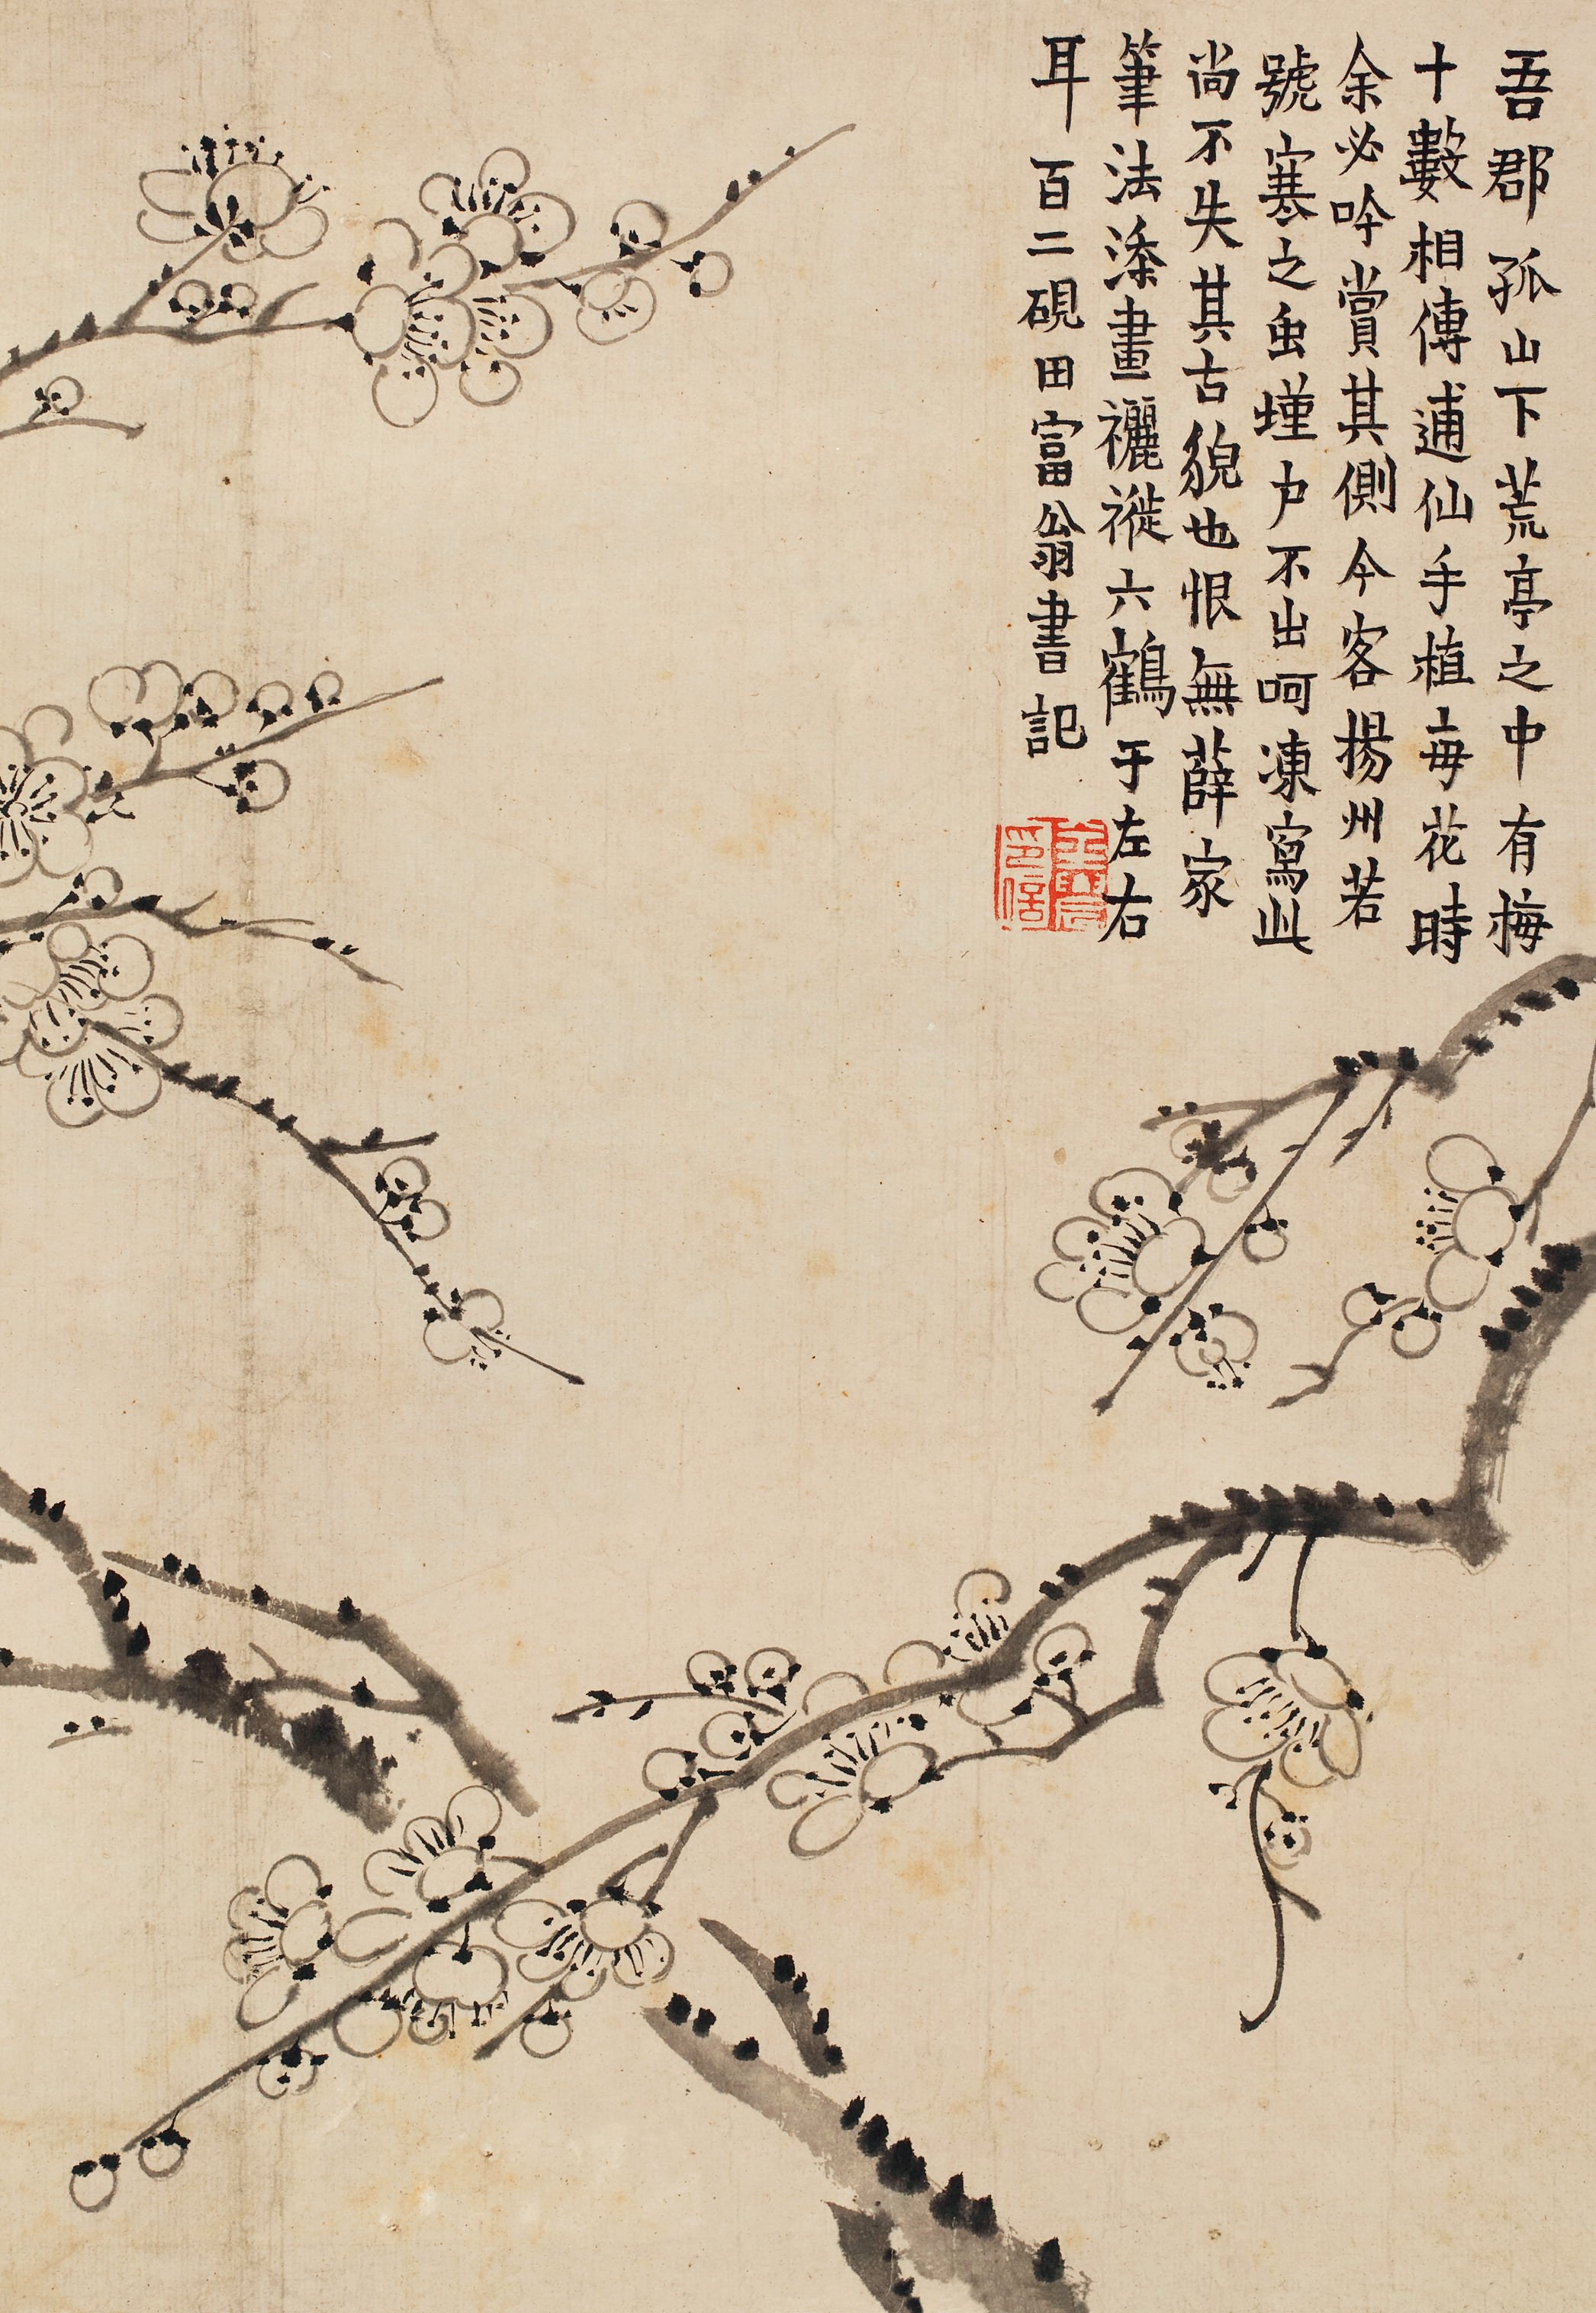 吾郡孤山下荒亭之中有梅
十數相傳逋仙手植每花時
余必吟賞其側今客揚州若
號寒之虫墐户不出呵凍寫此
尚不失其古貌也恨無薛家
筆法添畫䙰褷六鶴于左右
耳百二硯田富翁書記